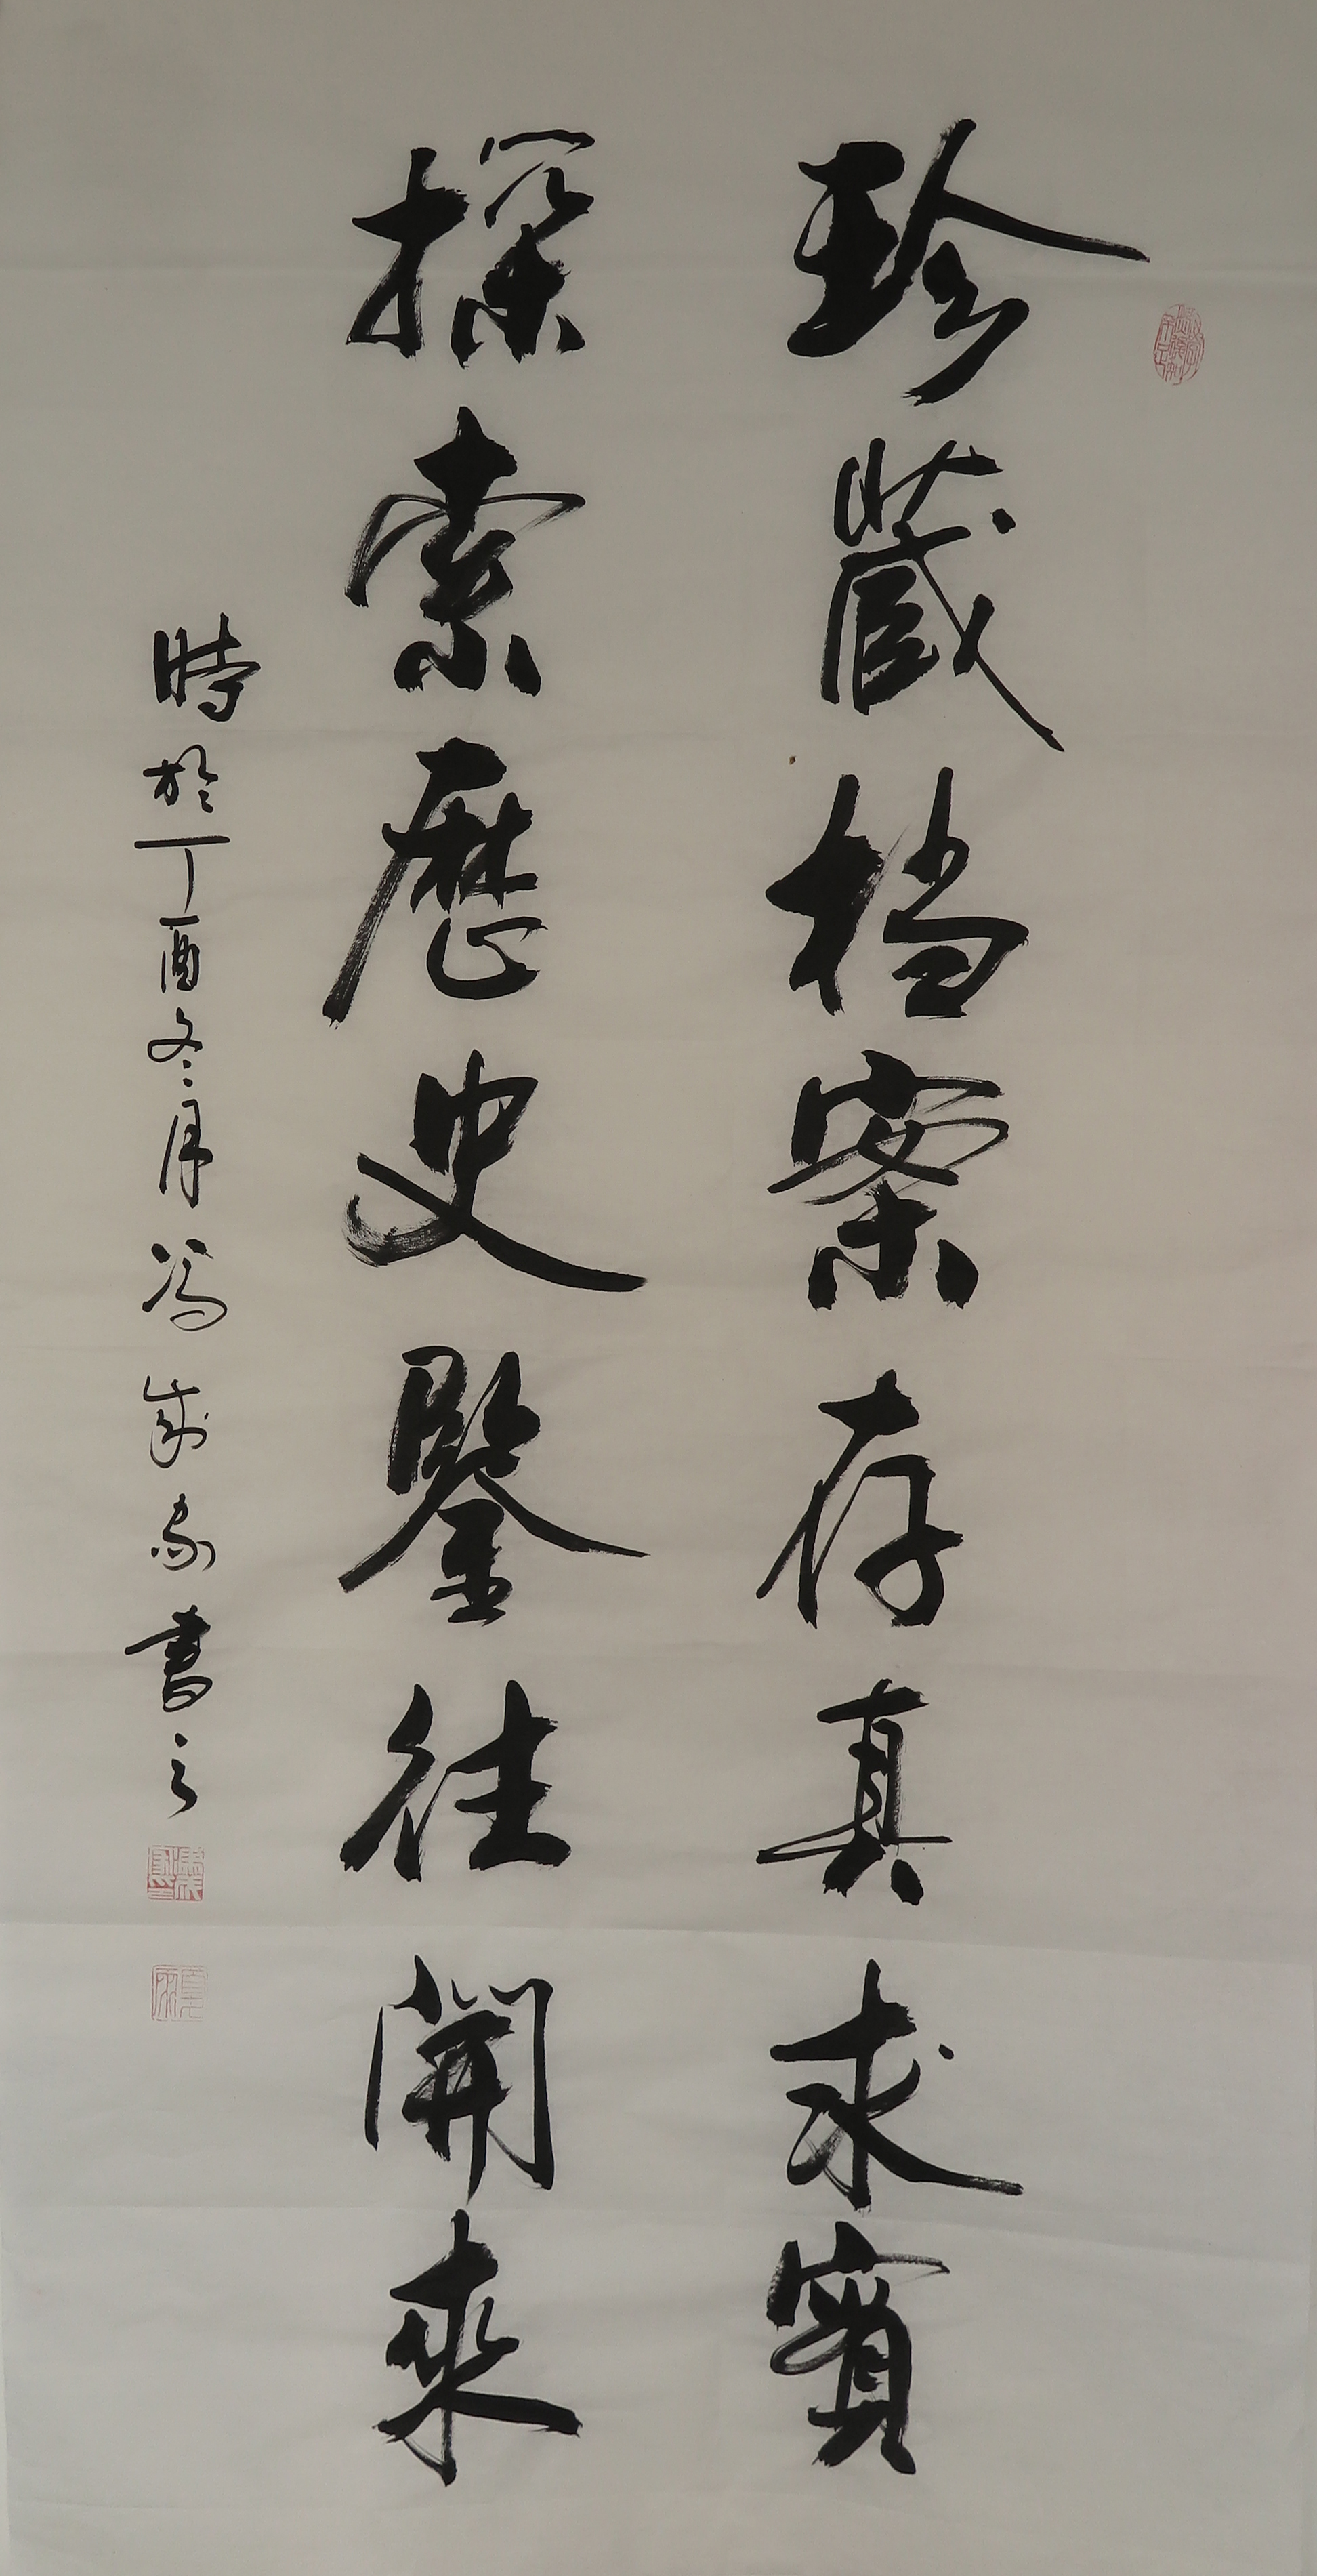 珍藏档案存真求實
探索歷史鑒往開來
時於丁酉冬月馮成家書之